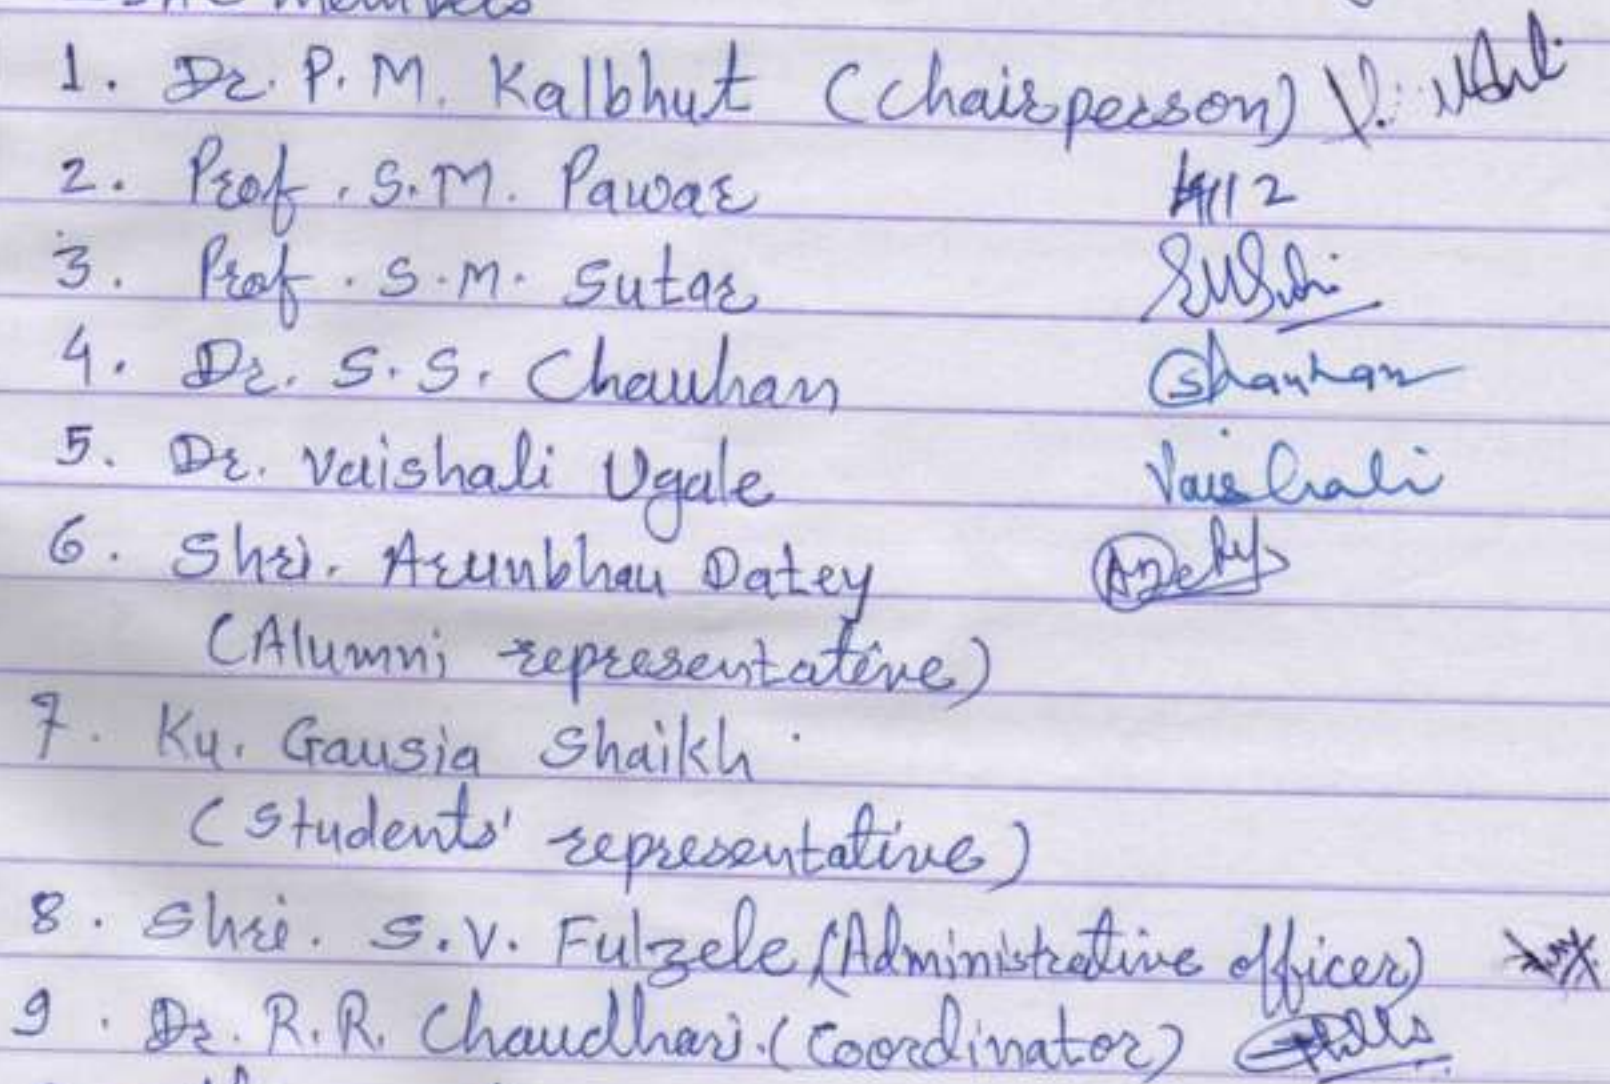 Members
1. Dr. P. M. Kalbhut (Chairperson)
2. Prof. S. M. Pawar
3. Prof. S. M. Sutar
4. Dr. S. S. Chauhan
5. Dr. Vaishali Ugale Vaishali
6. Shri. Arunbhau Datey
(Alumni representative)
7. Ku. Gausia Shaikh
(Students' representative)
8. Shri. S. V. Fulzele (Administrative officer)
9. Dr. R. R. Chaudhari. (Coordinator)